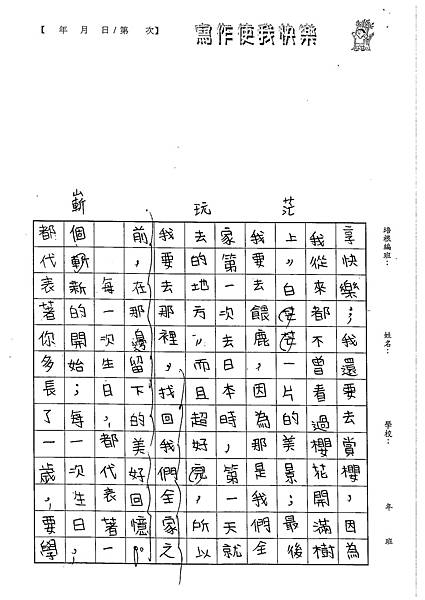 【 年 月 日/第 次】
寫作使我快樂
培根編班：
姓名：
學校：
年 班
茫
玩
嶄
享快樂；我還要去賞櫻，因為
我從來都不曾看過櫻花開滿樹
上，白茫茫一片的美景；最後
我要去餵鹿，因為那是我們全
家第一次去日本時，第一天就
去的地方，而且超好玩，所以
我要去那裡，找回我們全家之
前，在那邊留下的美好回憶。
每一次生日，都代表著一
個嶄新的開始；每一次生日，
都代表著你多長了一歲，要學